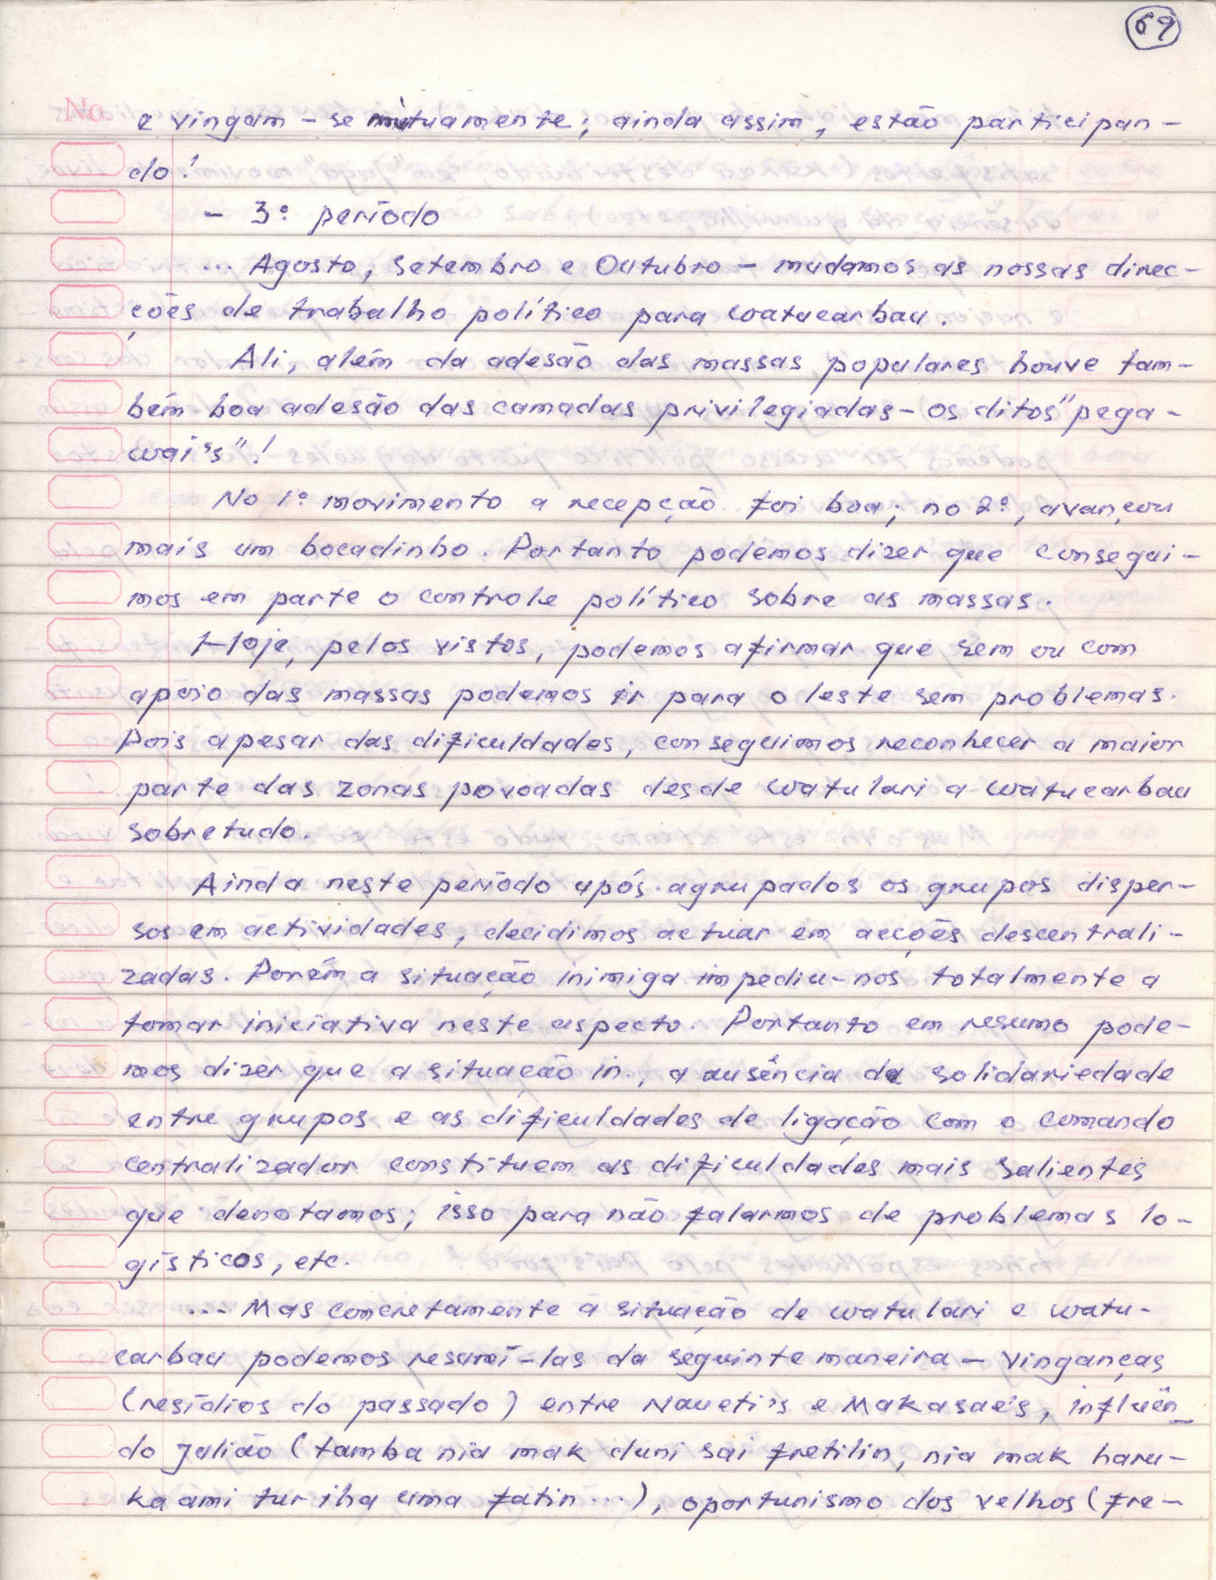 69
e vingam-se mùtuamente; ainda assim, estão participan-
do!
- 3º período
... Agosto, Setembro e Outubro - mudamos as nossas direc-
ções de trabalho político para watucarbau.
Ali, além da adesão das massas populares houve tam-
bém boa adesão das camadas privilegiadas - os ditos "pega-
wai's"!
No 1º movimento a recepção foi boa; no 2º, avançou
mais um bocadinho. Portanto podemos dizer que consegui-
mos em parte o controle político sobre as massas.
Hoje, pelos vistos, podemos afirmar que sem ou com
apoio das massas podemos ir para o leste sem problemas.
Pois apesar das dificuldades, conseguimos reconhecer a maior
parte das zonas povoadas desde watulari a watucarbau
sobretudo.
Ainda neste período após agrupados os grupos disper-
sos em actividades, decidimos actuar em acções descentrali-
zadas. Porém a situação inimiga impediu-nos totalmente a
tomar iniciativa neste aspecto. Portanto em resumo pode-
mos dizer que a situação in., a ausência da solidariedade
entre grupos e as dificuldades de ligação com o comando
centralizador constituem as dificuldades mais salientes
que denotamos; isso para não falarmos de problemas lo-
gísticos, etc.
... Mas concretamente a situação de watulari e watu-
carbau podemos resumí-las da seguinte maneira - vinganças
(resídios do passado) entre Naueti's e Makasaes, influên
do Julião (tamba nia mak duni sai fretilin, nia mak haru-
ka ami tur iha uma fatin...), oportunismo dos velhos (fre-